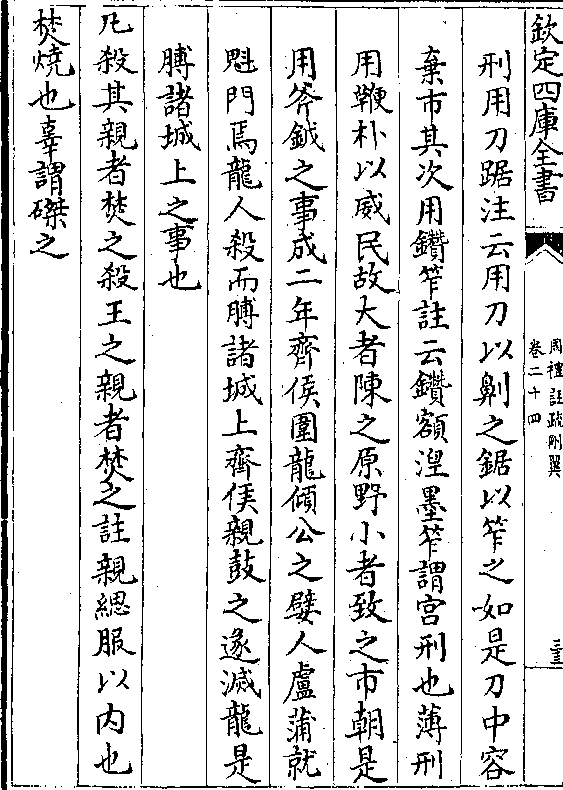 欽定四庫全書
周禮註疏刪翼
卷二十四
三
刑用刀踞注云用刀以劓之鋸以笮之如是刀中容
棄市其次用鑽笮註云鑽額涅墨笮謂宫刑也薄刑
用鞭朴以威民故大者陳之原野小者致之市朝是
用斧鉞之事成二年齊侯圍龍傾公之嬖人盧蒲就
魁門焉龍人殺而膊諸城上齊侯親鼓之遂滅龍是
膊諸城上之事也
凡殺其親者焚之殺王之親者焚之註親緦服以内也
焚燒也辜謂磔之